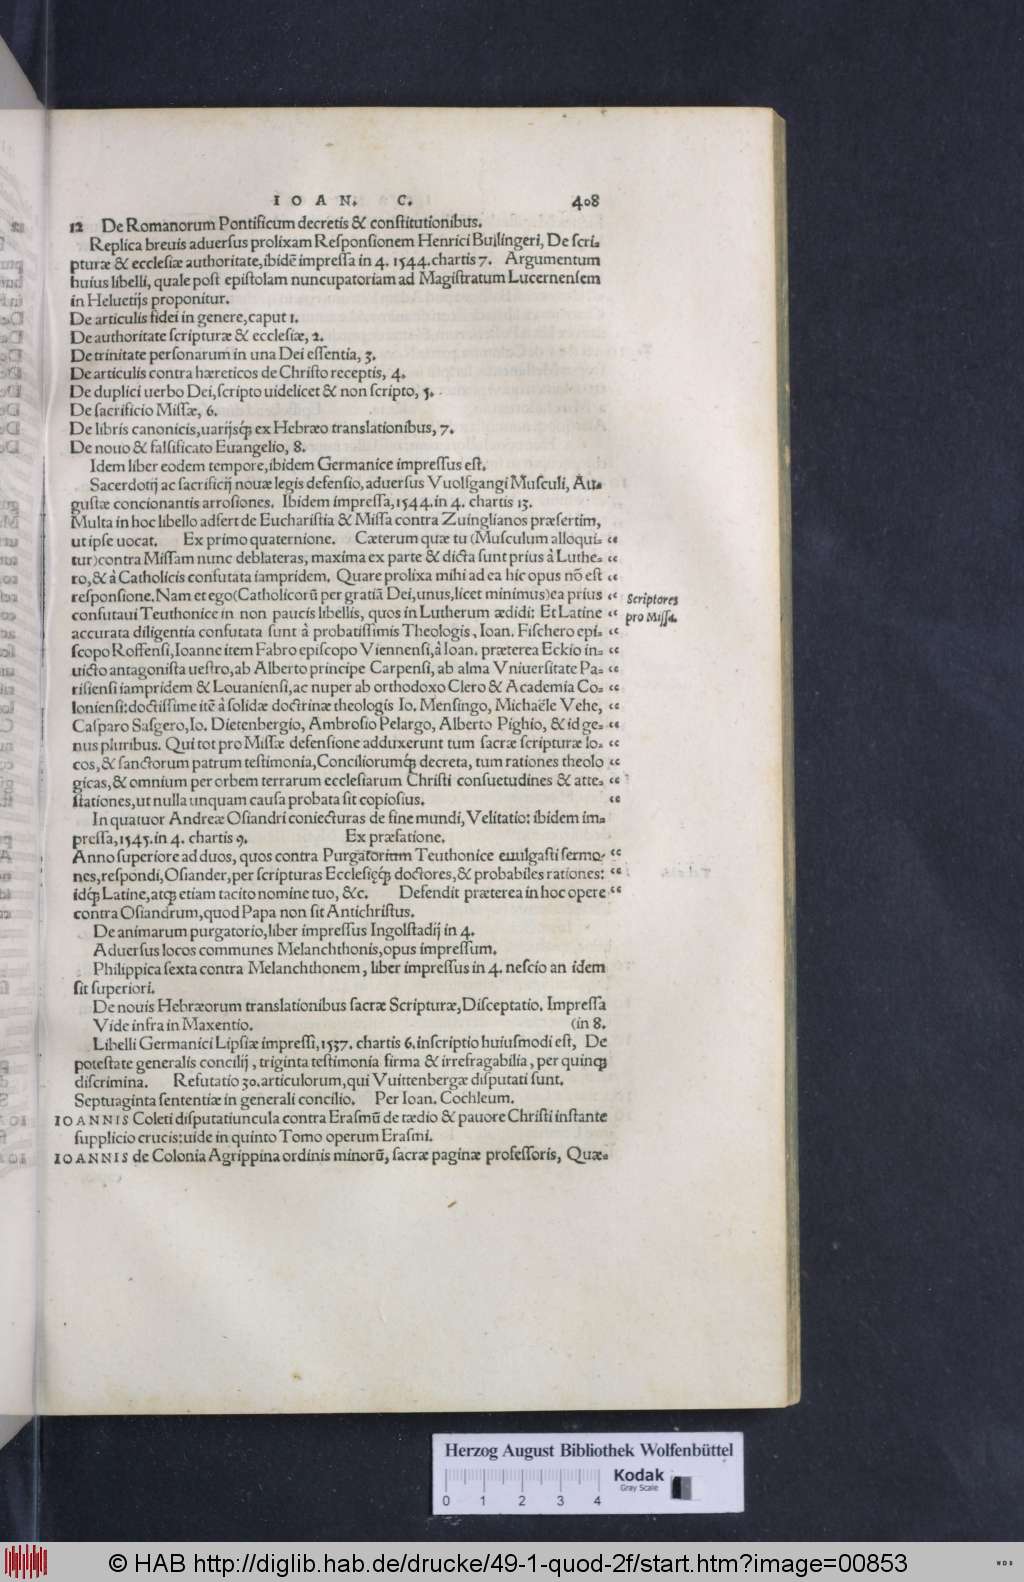 IOAN. C. 408
12 De Romanorum Pontificum decretis & constitutionibus.
Replica breuis aduersus prolixam Responsionem Henrici Bullingeri, De scri-
pturæ & ecclesiæ authoritate, ibidē impressa in 4. 1544. chartis 7. Argumentum
huius libelli, quale post epistolam nuncupatoriam ad Magistratum Lucernensem
in Heluetijs proponitur.
De articulis fidei in genere, caput 1.
De authoritate scripturæ & ecclesiæ, 2.
De trinitate personarum in una Dei essentia, 3.
De articulis contra hæreticos de Christo receptis, 4.
De duplici uerbo Dei, scripto uidelicet & non scripto, 5.
De sacrificio Missæ, 6.
De libris canonicis, uarijsq́; ex Hebræo translationibus, 7.
De nouo & falsificato Euangelio, 8.
Idem liber eodem tempore, ibidem Germanice impressus est.
Sacerdotij ac sacrificij nouæ legis defensio, aduersus Vuolfgangi Musculi, Au-
gustæ concionantis arrosiones. Ibidem impressa, 1544. in 4. chartis 13.
Multa in hoc libello adfert de Eucharistia & Missa contra Zuinglianos præsertim,
ut ipse uocat. Ex primo quaternione. Cæterum quæ tu (Musculum alloqui- “
tur) contra Missam nunc deblateras, maxima ex parte & dicta sunt prius à Luthe- “
ro, & à Catholicis confutata iampridem. Quare prolixa mihi ad ea hic opus nō est “
responsione. Nam et ego (Catholicorū per gratiā Dei, unus, licet minimus) ea prius “ Scriptores
confutaui Teuthonice in non paucis libellis, quos in Lutherum ædidi: Et Latine “ pro Missa.
accurata diligentia confutata sunt à probatissimis Theologis, Ioan. Fischero epi- “
scopo Roffensi, Ioanne item Fabro episcopo Viennensi, à Ioan. præterea Eckio in- “
uicto antagonista uestro, ab Alberto principe Carpensi, ab alma Vniuersitate Pa- “
risiensi iampridem & Louaniensi, ac nuper ab orthodoxo Clero & Academia Co- “
loniensi: doctissime itē à solidæ doctrinæ theologis Io. Mensingo, Michaële Vehe, “
Casparo Sasgero, Io. Dietenbergio, Ambrosio Pelargo, Alberto Pighio, & id ge- “
nus pluribus. Qui tot pro Missæ defensione adduxerunt tum sacræ scripturæ lo- “
cos, & sanctorum patrum testimonia, Conciliorumq́; decreta, tum rationes theolo “
gicas, & omnium per orbem terrarum ecclesiarum Christi consuetudines & atte- “
stationes, ut nulla unquam causa probata sit copiosius. “
In quatuor Andreæ Osiandri coniecturas de fine mundi, Velitatio: ibidem im-
pressa, 1545. in 4. chartis 9. Ex præfatione.
Anno superiore ad duos, quos contra Purgatorium Teuthonice euulgasti sermo- “
nes, respondi, Osiander, per scripturas Ecclesięq́; doctores, & probabiles rationes: “
idq́; Latine, atq́; etiam tacito nomine tuo, &c. Defendit præterea in hoc opere “
contra Osiandrum, quod Papa non sit Antichristus.
De animarum purgatorio, liber impressus Ingolstadij in 4.
Aduersus locos communes Melanchthonis, opus impressum.
Philippica sexta contra Melanchthonem, liber impressus in 4. nescio an idem
sit superiori.
De nouis Hebræorum translationibus sacræ Scripturæ, Disceptatio. Impressa
Vide infra in Maxentio. (in 8.
Libelli Germanici Lipsiæ impressi, 1537. chartis 6. inscriptio huiusmodi est, De
potestate generalis concilij, triginta testimonia firma & irrefragabilia, per quinq́;
discrimina. Refutatio 30. articulorum, qui Vuittenbergæ disputati sunt.
Septuaginta sententiæ in generali concilio. Per Ioan. Cochleum.
IOANNIS Coleti disputatiuncula contra Erasmū de tædio & pauore Christi instante
supplicio crucis: uide in quinto Tomo operum Erasmi.
IOANNIS de Colonia Agrippina ordinis minorū, sacræ paginæ professoris, Quæ-
Herzog August Bibliothek Wolfenbüttel
0 1 2 3 4
Kodak
Gray Scale
© HAB http://diglib.hab.de/drucke/49-1-quod-2f/start.htm?image=00853
WDB